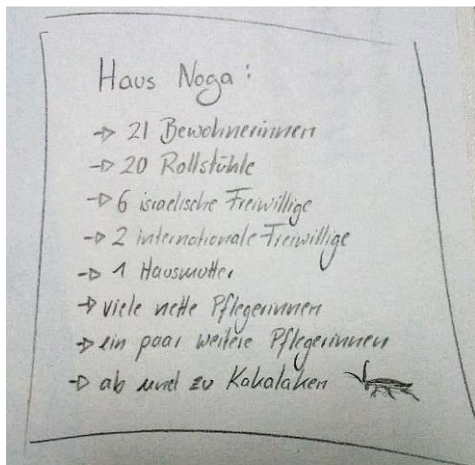 Haus Noga:
-> 21 Bewohnerinnen
-> 20 Rollstühle
-> 6 israelische Freiwillige
-> 2 internationale Freiwillige
-> 1 Hausmutter
-> viele nette Pflegerinnen
-> ein paar weitere Pflegerinnen
-> ab und zu Kakalaken